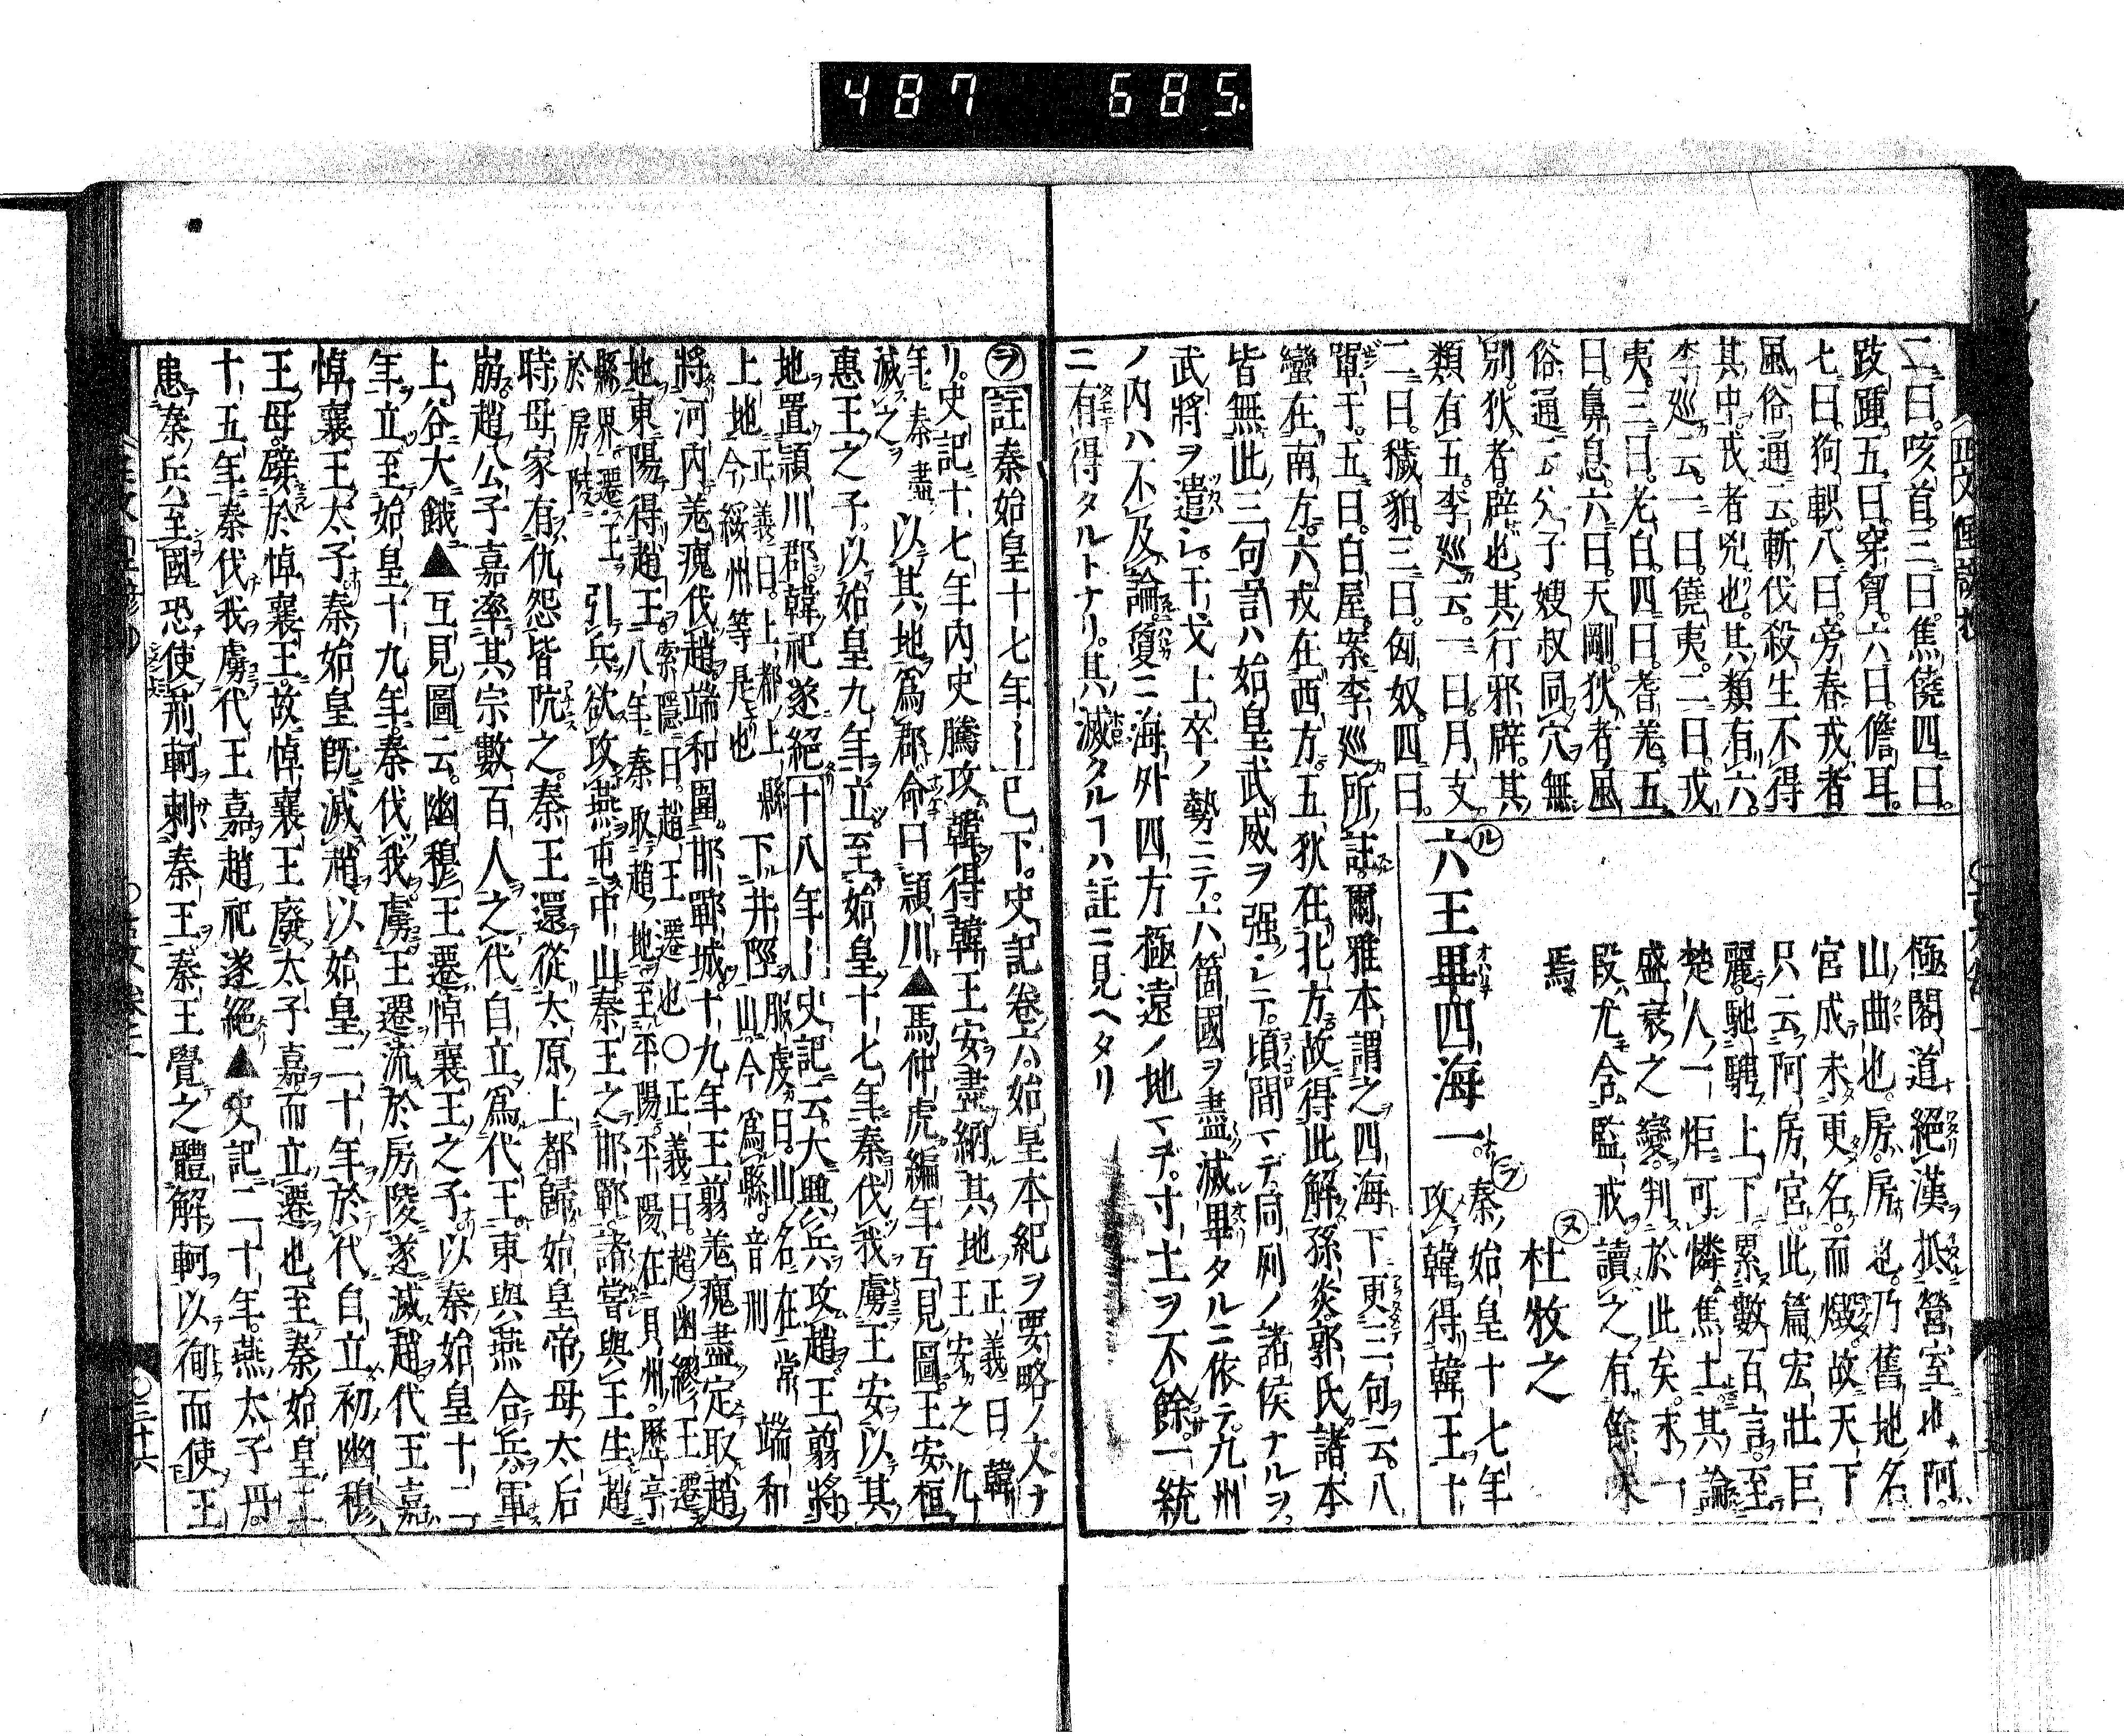 487 685
二曰咳首。三曰焦僥。四曰
跂踵。五曰穿胷。六曰儋耳。
七曰狗軹。八曰旁春。戎者
風俗通云。斬伐殺生不得
其中。戎者兇也。其類有六。
李巡云。一曰僥夷。二曰戎
夷。三曰老白。四曰耆羌。五
曰鼻息。六曰天剛。狄者風
俗通云父子嫂叔同穴無
別。狄者辟也。其行邪辟。其
類有五。李巡云。一曰月支
二曰穢貊。三曰匈奴。四曰
單于。五曰白屋。案李巡所註爾雅本謂之四海下更三句云。八
蠻在南方。六戎在西方。五狄在北方。故得此解孫炎郭氏諸本
皆無此三句言ハ始皇武威ヲ强シテ。頃間マデ。同列ノ諸侯ナルヲ。
武將ヲ遣シ。干戈上卒ノ勢ニテ。六箇國ヲ盡滅畢タルニ依テ。九州
ノ內ハ不及論。夐ニ海外四方極遠ノ地マデ。寸土ヲ不餘。一統
ニ有得タルトナリ。其滅タルヿハ註ニ見ヘタリ
極閣道絕漢抵營室也阿。
山曲也。房。房也。乃舊地名
宮成未更名。而燬。故天下
只云阿房宮。此篇宏壯巨
麗馳騁上下累數百言。至
楚人一炬可憐焦土其論
盛衰之變。判於此矣。末一
段尤含監戒讀之有餘味
焉
㋦杜牧之
㋸六王畢。四海一。㋾秦始皇十七年
攻韓得韓王十
㋾註秦始皇十七年〡已下。史記卷六始皇本紀ヲ要略ノ文ナ
リ。史記十七年內史騰攻韓得韓王安盡納其地正義曰韓
王安之九
年秦盡
滅之以其地爲郡命曰頴川▲馬仲虎編年互見圖。王安桓
惠王之子。以始皇九年立至始皇十七年秦伐我虜王安以其
地置頴川郡。韓祀遂絕十八年〡史記云。大興兵攻趙王翦將
上地正義曰。上郡上縣
今綏州等是也下井陘服虔曰。山名在常
山今爲縣。音刑端和
將河內羌瘣伐趙端和圍邯鄲城。十九年王翦羌瘣盡定取趙
地東陽得趙王索隱曰。趙王遷也〇正義曰。趙幽繆王遷
八年秦取趙地至平陽。平陽在貝州。歷亭
縣界。遷王
於房陵引兵欲攻燕屯中山。秦王之邯鄲。諸嘗與王生趙
時母家有仇怨皆阬之。秦王還從太原上都歸始皇帝母太后
崩。趙公子嘉率其宗數百人之代自立爲代王。東與燕合兵。軍
上谷大餓▲互見圖云。幽穆王遷悼襄王之子以秦始皇十二
年立至始皇十九年秦伐我虜王遷流於房陵遂滅趙代王嘉
悼襄王太子秦始皇旣滅趙以始皇二十年於代自立初幽穆
王母。嬖於悼襄王。故悼襄王廢太子嘉而立遷也。至秦始皇二
十五年秦伐我虜代王嘉趙祀遂絕▲史記二十年。燕太子丹
患秦兵至國恐使荊軻刺秦王秦王覺之體解軻以徇而使王
〇三十六